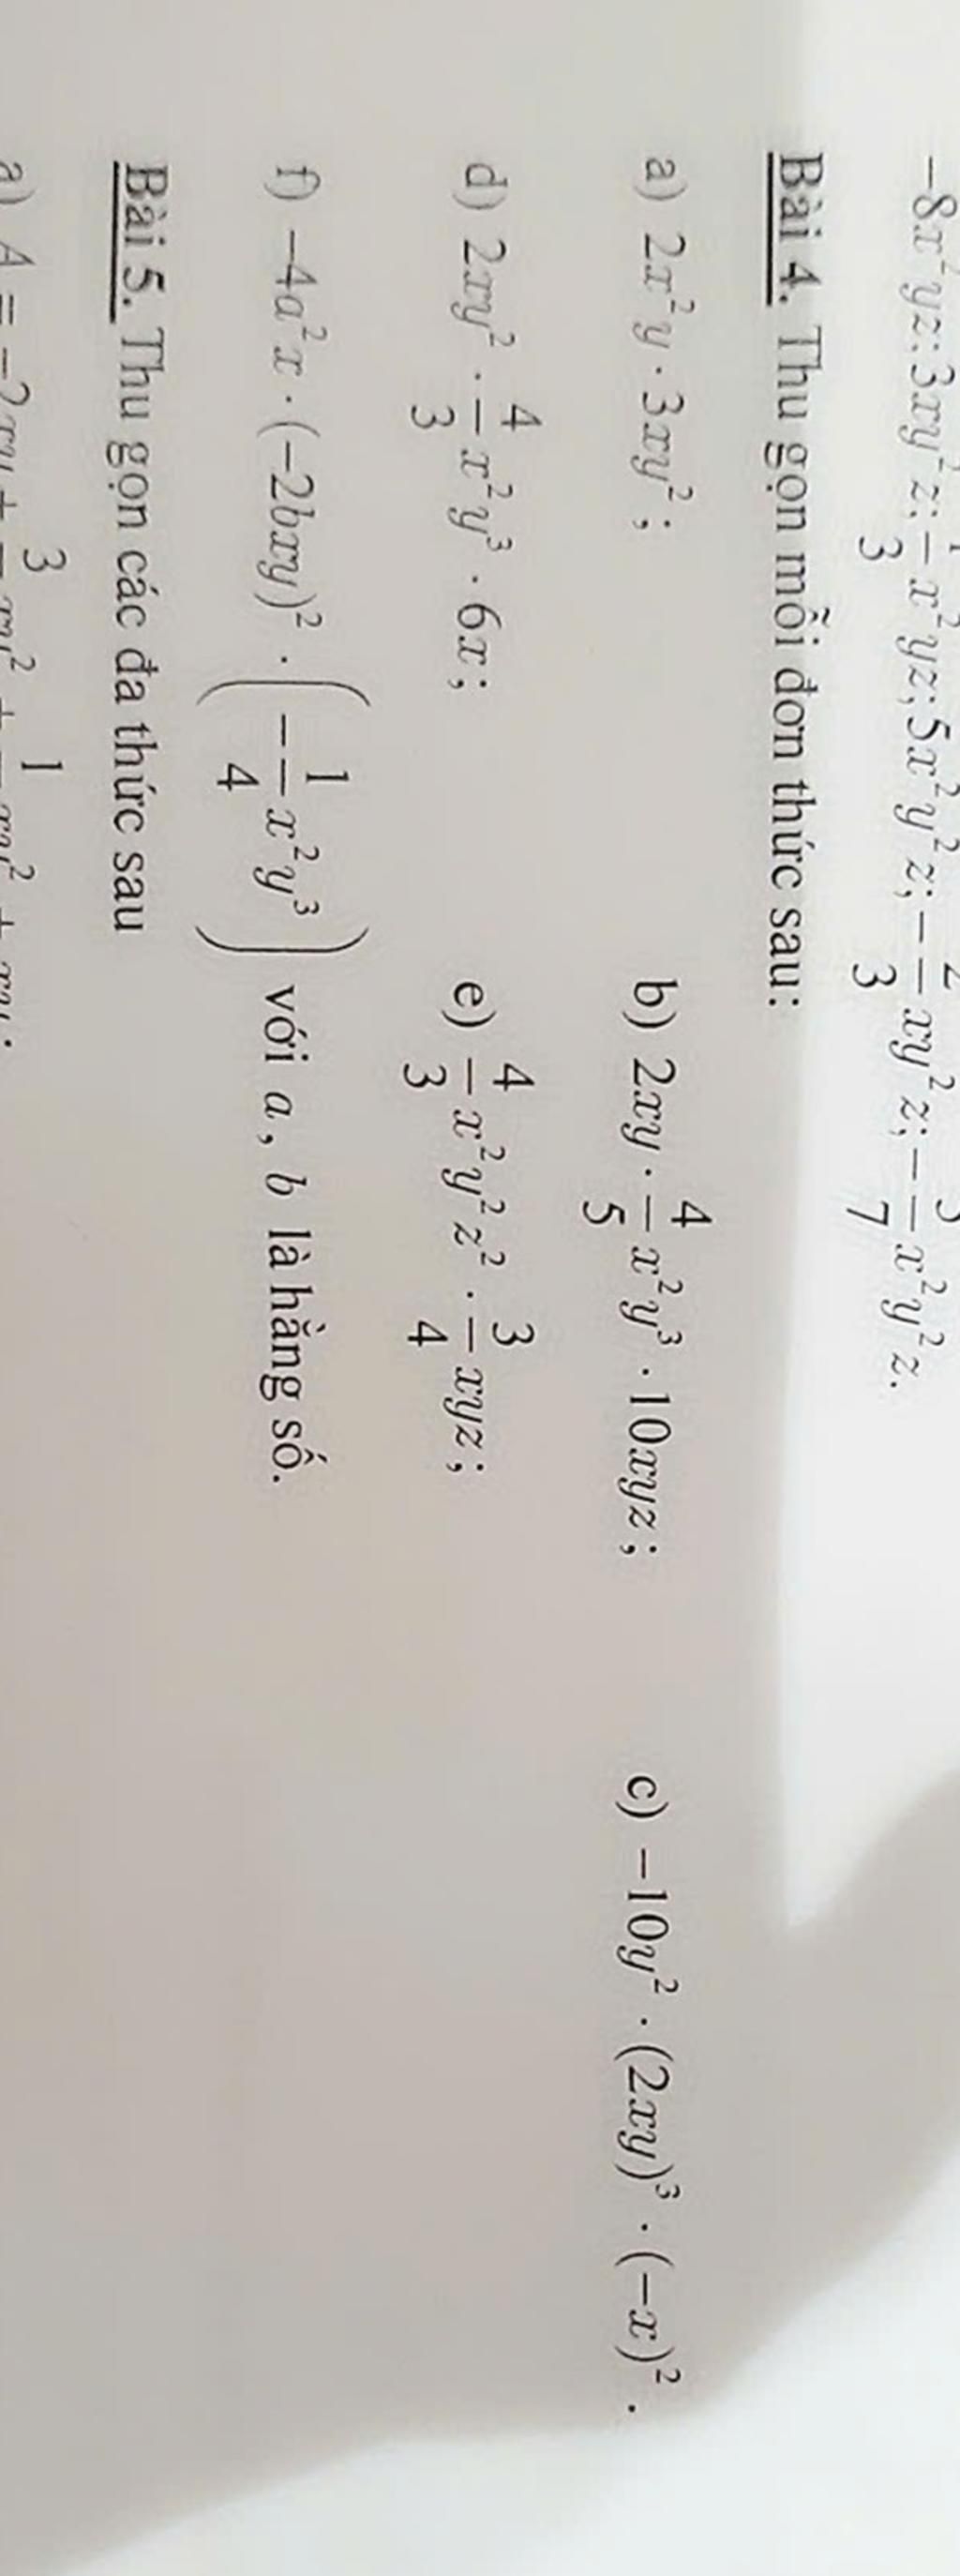 −8x²yz; 3xy²z; 1/3 x²yz; 5x²y²z; −2/3 xy²z; − /7 x²y²z.
Bài 4. Thu gọn mỗi đơn thức sau:
a) 2x²y · 3xy²; b) 2xy · 4/5 x²y³ · 10xyz; c) −10y² · (2xy)³ · (−x)².
d) 2xy² · 4/3 x²y³ · 6x; e) 4/3 x²y²z² · 3/4 xyz;
f) −4a²x · (−2bxy)² · (−1/4 x²y³) với a, b là hằng số.
Bài 5. Thu gọn các đa thức sau
a) A = −2xy + 3 xy² + 1 xy² + xy;